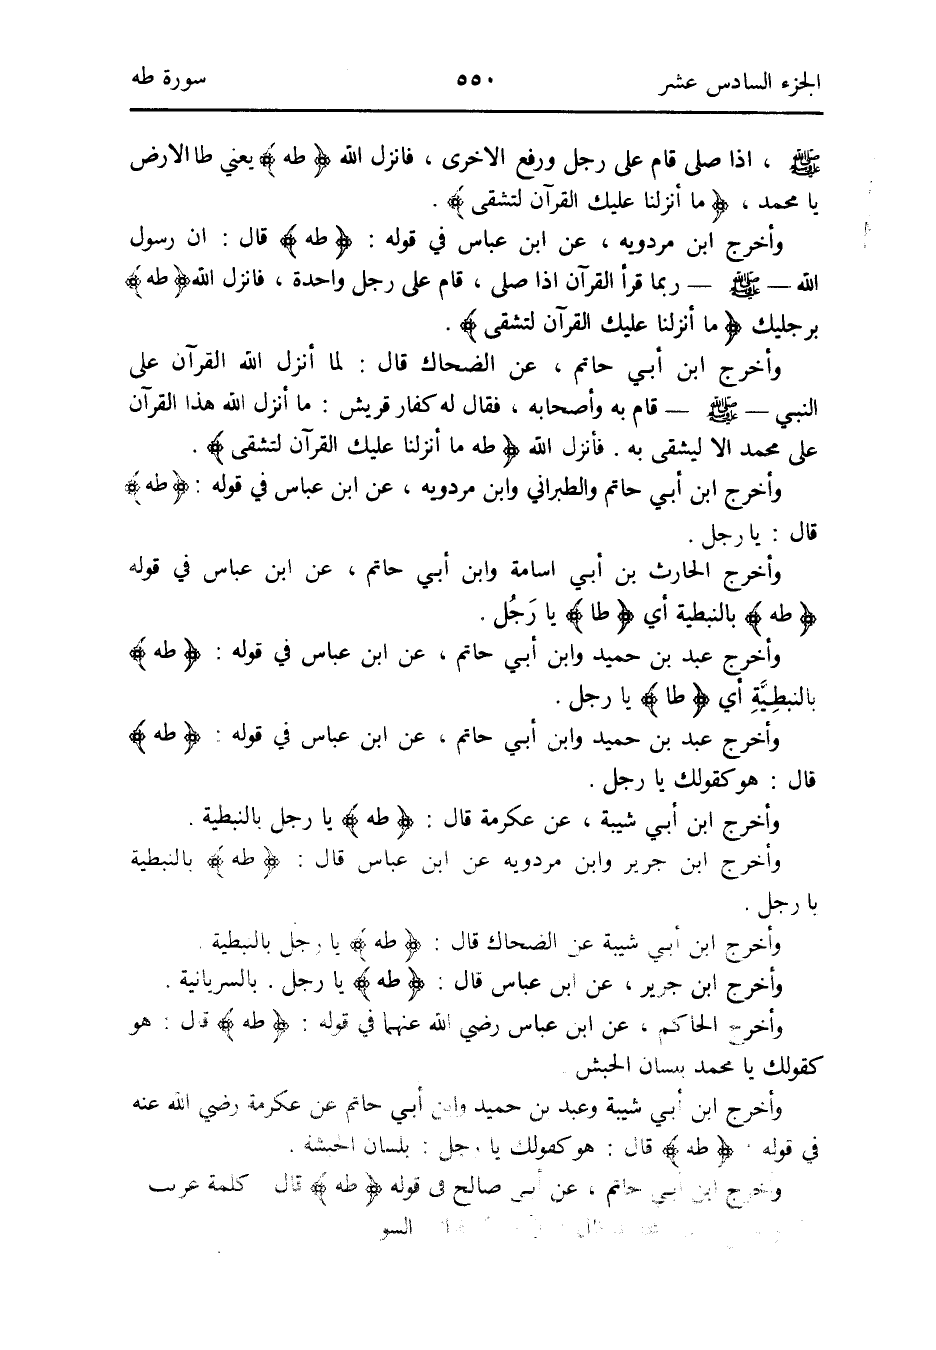 الجزء السادس عشر ٥٥٠ سورة طه
ﷺ ، اذا صلى قام على رجل ورفع الاخرى ، فانزل الله ﴿ طه ﴾ يعني طا الارض
يا محمد ، ﴿ ما أنزلنا عليك القرآن لتشقى ﴾ .
وأخرج ابن مردويه ، عن ابن عباس في قوله : ﴿ طه ﴾ قال : ان رسول
الله — ﷺ — ربما قرأ القرآن اذا صلى ، قام على رجل واحدة ، فانزل الله ﴿ طه ﴾
برجليك ﴿ ما أنزلنا عليك القرآن لتشقى ﴾ .
وأخرج ابن أبي حاتم ، عن الضحاك قال : لما أنزل الله القرآن على
النبي — ﷺ — قام به وأصحابه ، فقال له كفار قريش : ما أنزل الله هذا القرآن
على محمد الا ليشقى به . فأنزل الله ﴿ طه ما أنزلنا عليك القرآن لتشقى ﴾ .
وأخرج ابن أبي حاتم والطبراني وابن مردويه ، عن ابن عباس في قوله : ﴿ طه ﴾
قال : يا رجل .
وأخرج الحارث بن أبي اسامة وابن أبي حاتم ، عن ابن عباس في قوله
﴿ طه ﴾ بالنبطية أي ﴿ طا ﴾ يا رَجُل .
وأخرج عبد بن حميد وابن أبي حاتم ، عن ابن عباس في قوله : ﴿ طه ﴾
بالنبطِيَّةِ أي ﴿ طا ﴾ يا رجل .
وأخرج عبد بن حميد وابن أبي حاتم ، عن ابن عباس في قوله : ﴿ طه ﴾
قال : هو كقولك يا رجل .
وأخرج ابن أبي شيبة ، عن عكرمة قال : ﴿ طه ﴾ يا رجل بالنبطية .
وأخرج ابن جرير وابن مردويه عن ابن عباس قال : ﴿ طه ﴾ بالنبطية
يا رجل .
وأخرج ابن أبي شيبة عن الضحاك قال : ﴿ طه ﴾ يا رجل بالنبطية .
وأخرج ابن جرير ، عن ابن عباس قال : ﴿ طه ﴾ يا رجل . بالسريانية .
وأخرج الحاكم ، عن ابن عباس رضي الله عنهما في قوله : ﴿ طه ﴾ قال : هو
كقولك يا محمد بلسان الحبش
وأخرج ابن أبي شيبة وعبد بن حميد وابن أبي حاتم عن عكرمة رضي الله عنه
في قوله ﴿ طه ﴾ قال : هو كقولك يا رجل : بلسان الحبشة .
وأخرج ابن أبي حاتم ، عن أبي صالح في قوله ﴿ طه ﴾ قال كلمة عربت